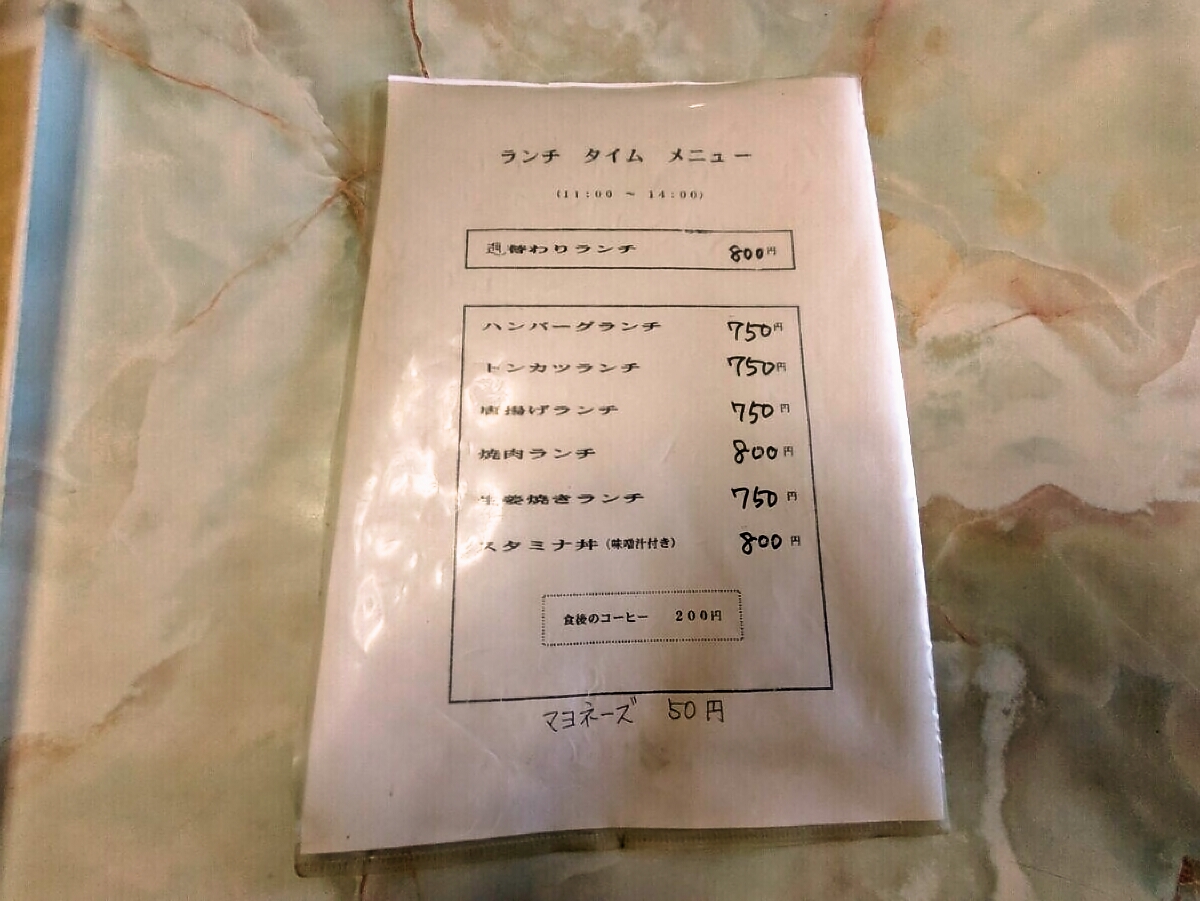 ランチ タイム メニュー
(11:00 ~ 14:00)
週替わりランチ 800円
ハンバーグランチ 750円
トンカツランチ 750円
唐揚げランチ 750円
焼肉ランチ 800円
生姜焼きランチ 750円
スタミナ丼(味噌汁付き) 800円
食後のコーヒー 200円
マヨネーズ 50円